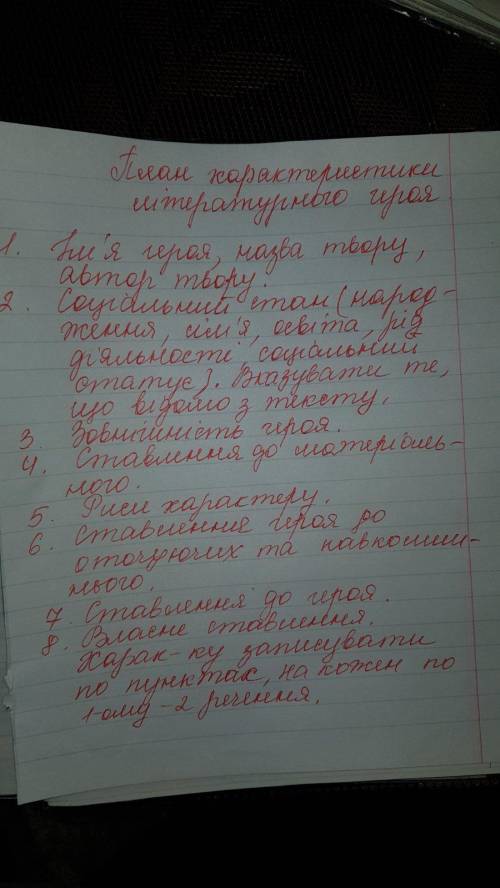 План характеристики
літературного героя
1. Ім'я героя, назва твору,
автор твору.
2. Соціальний стан (народ-
ження, сім'я, освіта, рід
діяльності, соціальний
статус). Вказувати те,
що відомо з тексту.
3. Зовнійність героя.
4. Ставлення до матеріаль-
ного.
5. Риси характеру.
6. Ставлення героя до
оточуючих та навколиш-
нього.
7. Ставлення до героя.
8. Власне ставлення.
Харак-ку записувати
по пунктах, на кожен по
1-ому-2 речення.